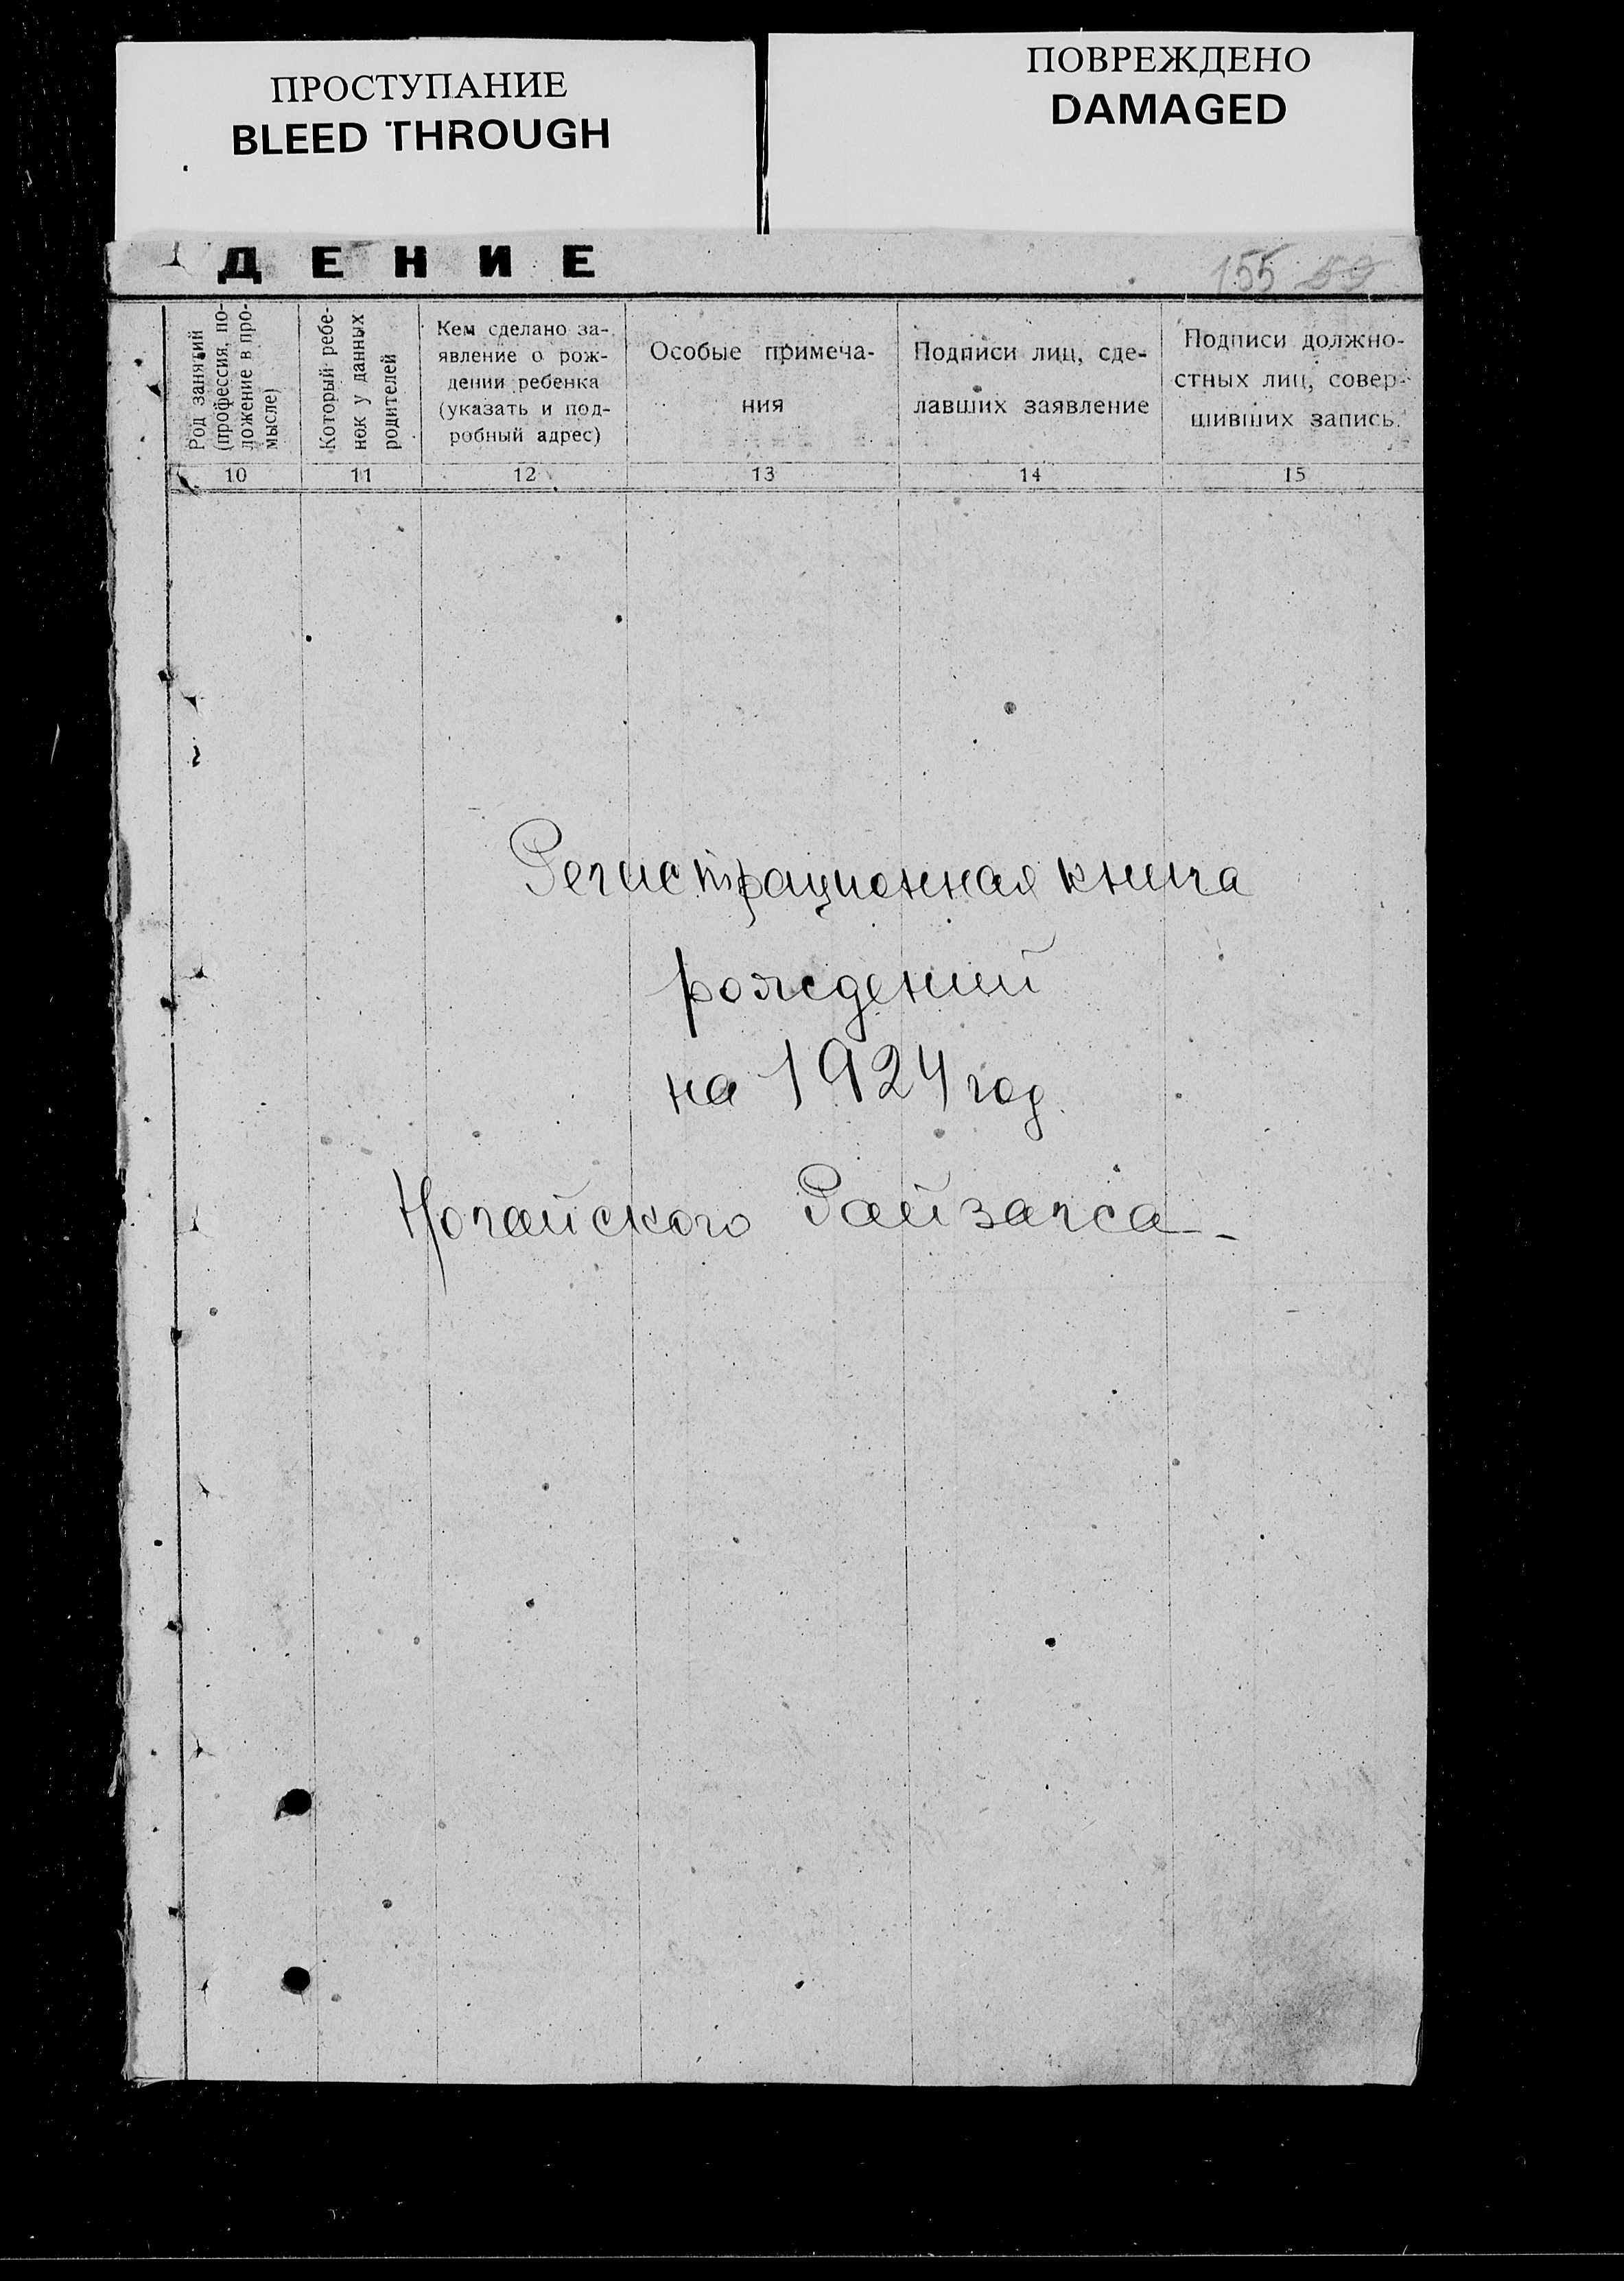 ПРОСТУПАНИЕ
BLEED THROUGH
ПОВРЕЖДЕНО
DAMAGED
ДЕНИЕ
155 59
Род занятий
(профессия, по-
ложение в про-
мысле)
Который ребе-
нок у данных
родителей
Кем сделано за-
явление о рож-
дении ребенка
(указать и под-
робный адрес)
Особые примеча-
ния
Подписи лиц, сде-
лавших заявление
Подписи должно-
стных лиц, совер-
шивших запись.
10 11 12 13 14 15
Регистрационная книга
рождений
на 1924 год.
Ногайского Райзагса